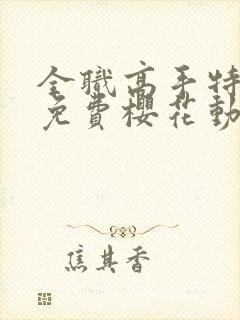 全職高手特
免費櫻花動
焦其香